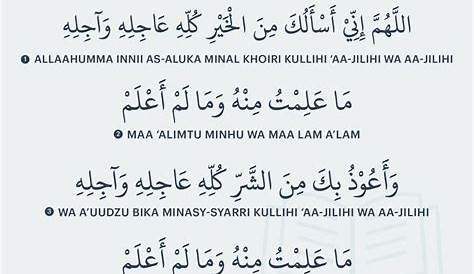 اللَّهُمَّ إِنِّيْ أَسْأَلُكَ مِنَ الْخَيْرِ كُلِّهِ عَاجِلِهِ وَآجِلِهِ
1 ALLAAHUMMA INNII AS-ALUKA MINAL KHOIRI KULLIHI ‘AA-JILIHI WA AA-JILIHI
مَا عَلِمْتُ مِنْهُ وَمَا لَمْ أَعْلَمْ
2 MAA ‘ALIMTU MINHU WA MAA LAM A’LAM
وَأَعُوْذُ بِكَ مِنَ الشَّرِّ كُلِّهِ عَاجِلِهِ وَآجِلِهِ
3 WA A’UUDZU BIKA MINASY-SYARRI KULLIHI ‘AA-JILIHI WA AA-JILIHI
مَا عَلِمْتُ مِنْهُ وَمَا لَمْ أَعْلَمْ